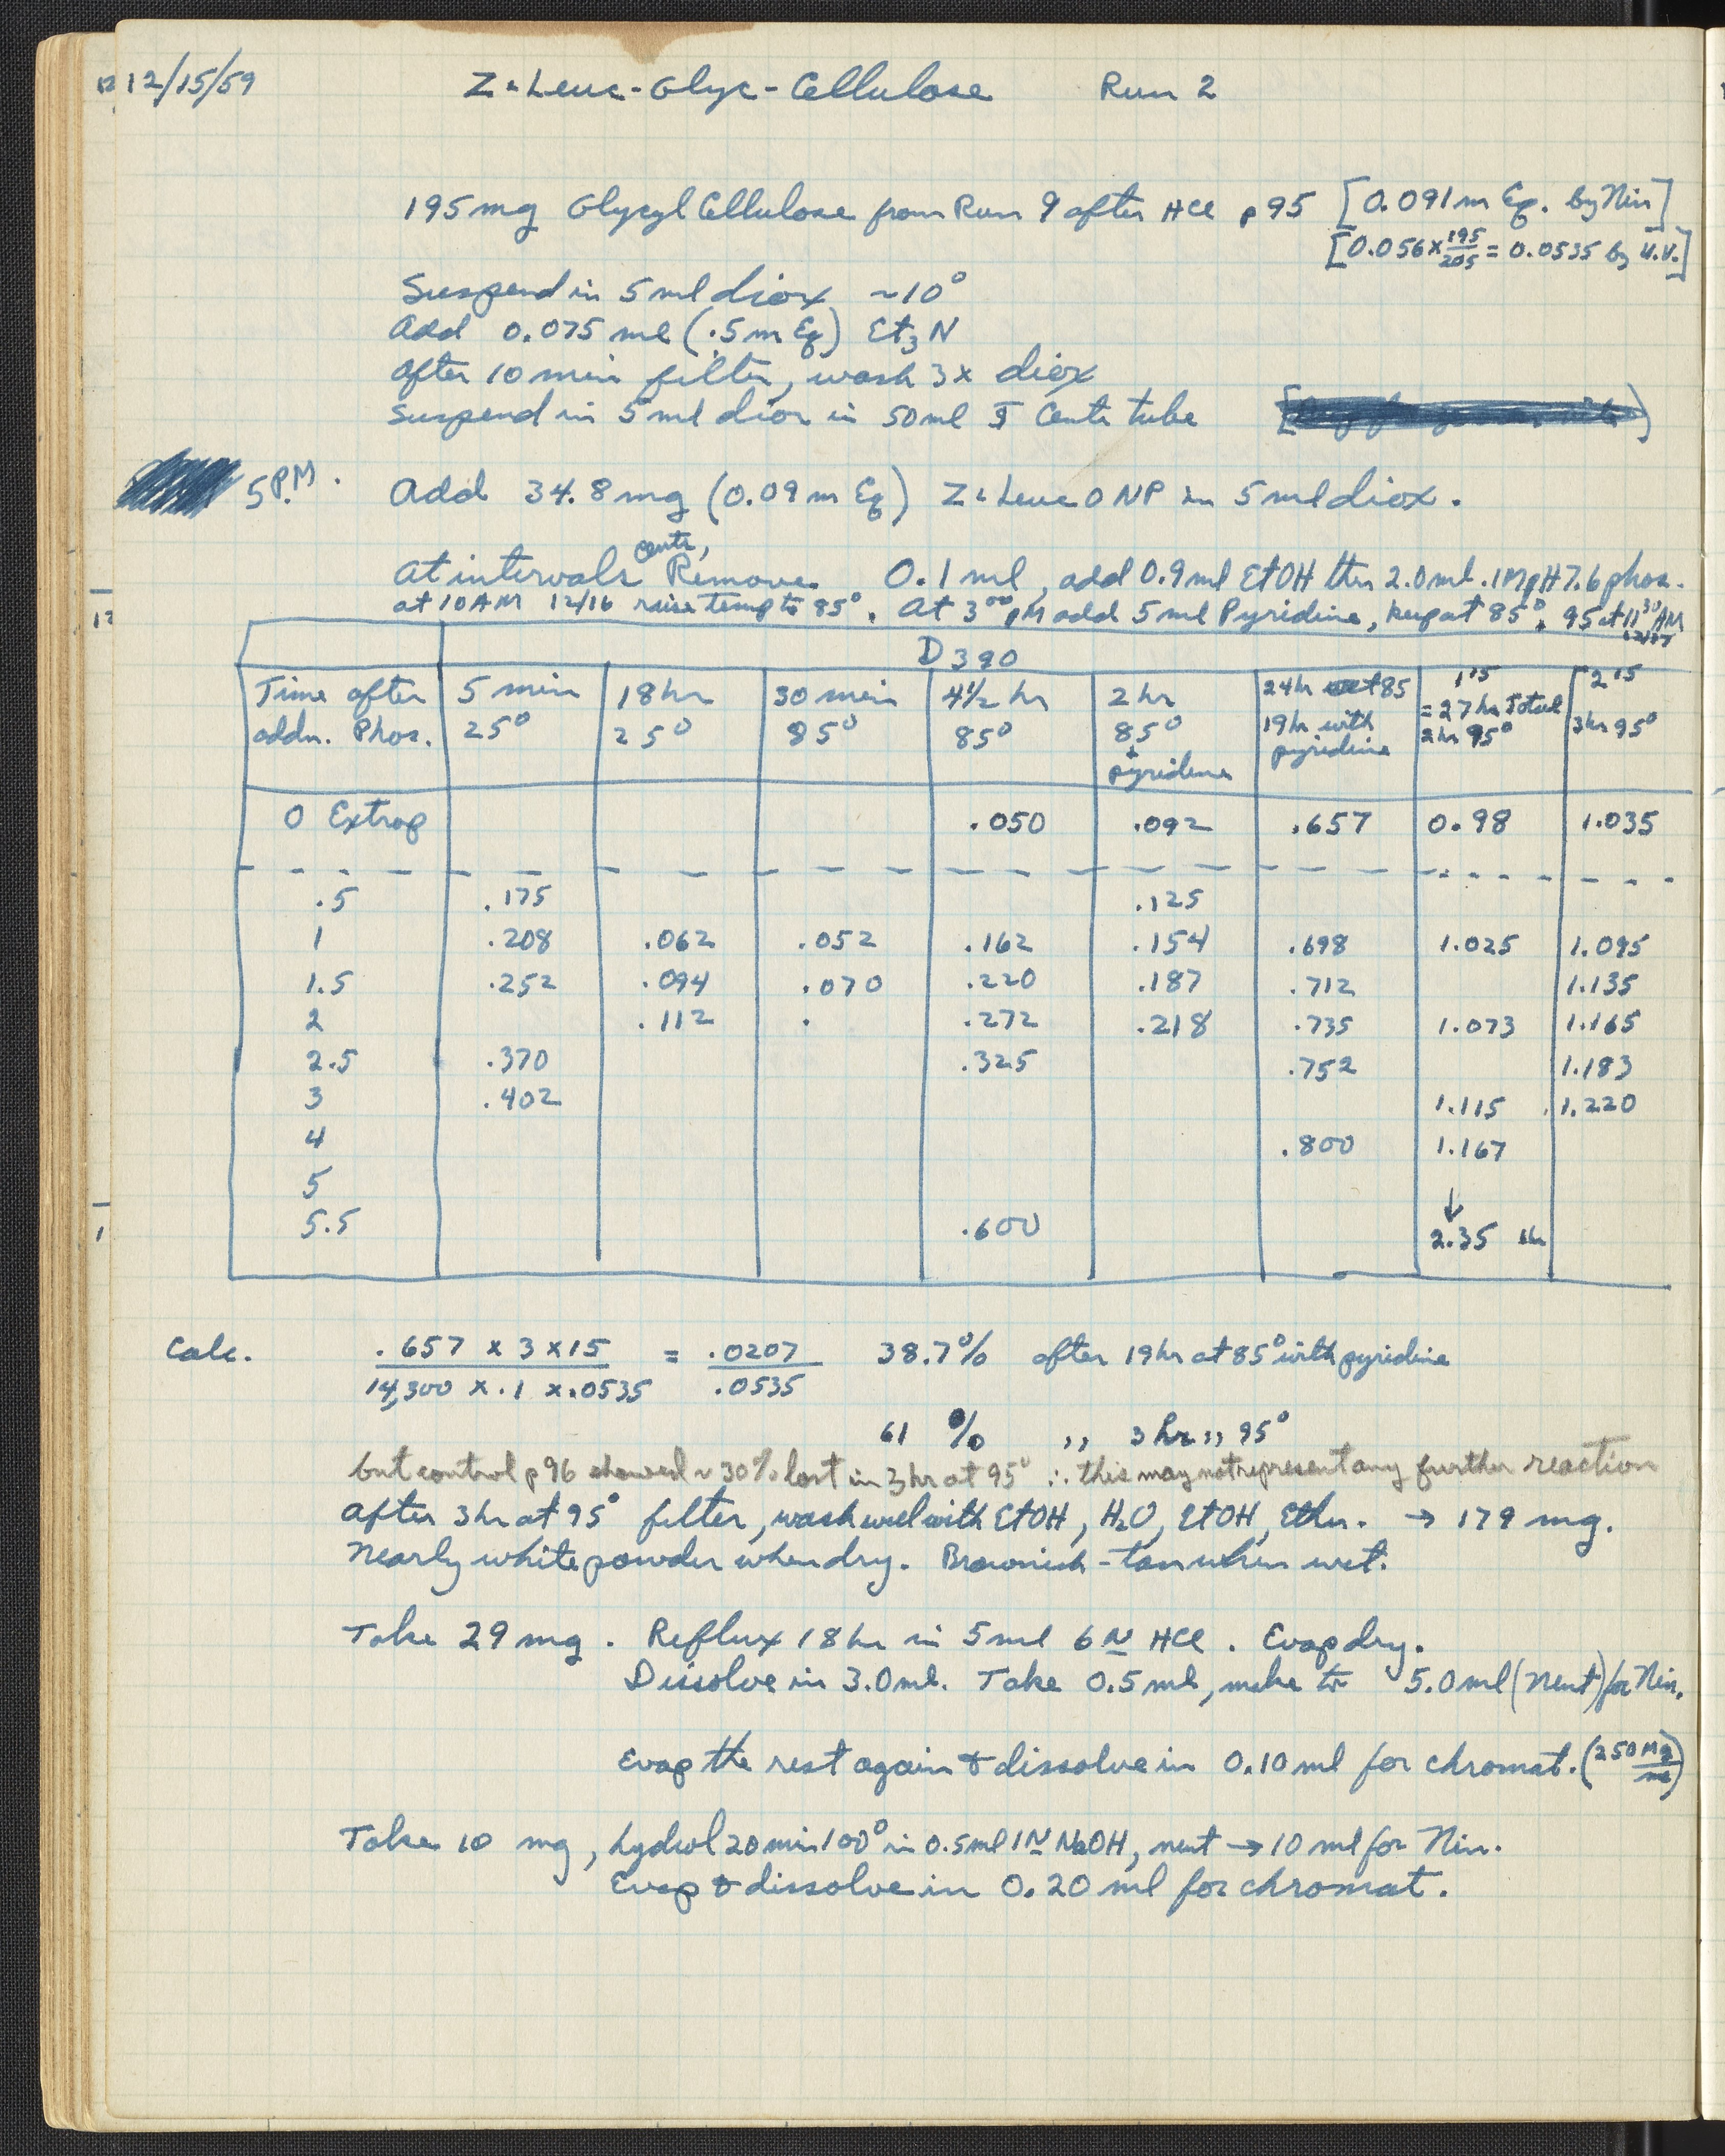 12/15/59 Z-Leuc-Glyc-Cellulose Run 2
195 mg Glycyl Cellulose from Run 9 after HCl p 95 [0.091 m Eq. by Nin]
[0.056 x 195/205 = 0.0535 by U.V.]
Suspend in 5 ml diox ~10°
Add 0.075 ml (.5 m Eq) Et3N
After 10 min filter, wash 3x diox
Suspend in 5 ml diox in 50 ml Centr tube
5 P.M. Add 34.8 mg (0.09 m Eq) Z-Leuc ONP in 5 ml diox.
centr,
At intervals Remove 0.1 ml, add 0.9 ml EtOH then 2.0 ml .1M pH 7.6 phos.
at 10 AM 12/16 raise temp to 85°. At 3⁰⁰ PM add 5 ml Pyridine, keep at 85°. 95 at 11³⁰ AM
12/17
D 390
Time after addn. Phos. | 5 min 25° | 18 hr 25° | 30 min 85° | 4½ hr 85° | 2 hr 85° + pyridine | 24 hr at 85 19 hr with pyridine | 1¹⁵ = 27 hr Total 2 hr 95° | 2¹⁵ 3 hr 95°
0 Extrap .050 .092 .657 0.98 1.035
.5 .175 .125
1 .208 .062 .052 .162 .154 .698 1.025 1.095
1.5 .252 .094 .070 .220 .187 .712 1.135
2 .112 . .272 .218 .735 1.073 1.165
2.5 .370 .325 .752 1.183
3 .402 1.115 1.220
4 .800 1.167
5 ↓
5.5 .600 2.35
Calc. .657 x 3 x 15 / 14,300 x .1 x .0535 = .0207 / .0535 38.7% after 19 hr at 85° with pyridine
61 % ,, 3 hr ,, 95°
but control p 96 showed ~ 30% lost in 3 hr at 95° ∴ this may not represent any further reaction
After 3 hr at 95° filter, wash well with EtOH, H2O, EtOH, Ether. → 179 mg.
Nearly white powder when dry. Brownish-tan when wet.
Take 29 mg. Reflux 18 hr in 5 ml 6 N HCl. Evap dry.
Dissolve in 3.0 ml. Take 0.5 ml, make to 5.0 ml (Neut) for Nin.
Evap the rest again & dissolve in 0.10 ml for chromat. (250 Mg/ml)
Take 10 mg, hydrol 20 min 100° in 0.5 ml 1 N NaOH, neut → 10 ml for Nin.
Evap & dissolve in 0.20 ml for chromat.